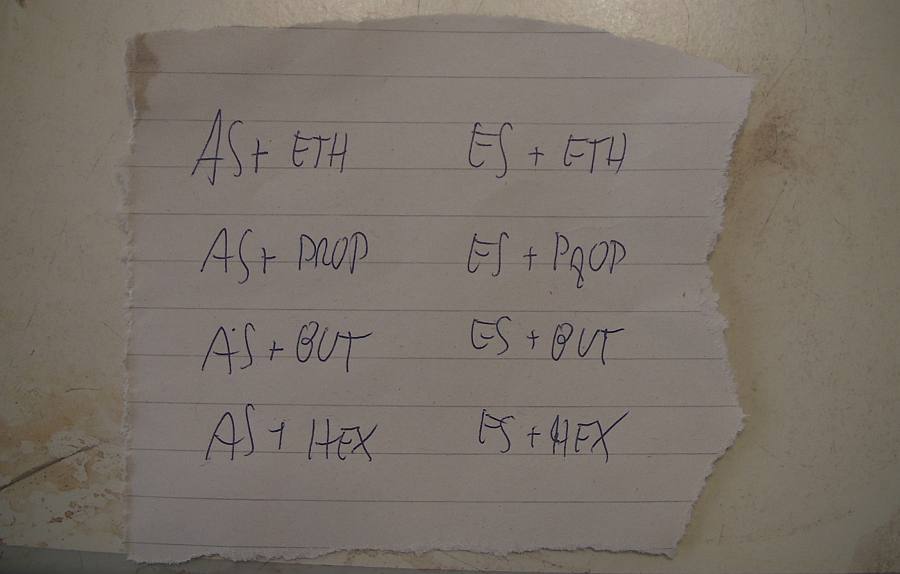 AS + ETH ES + ETH
AS + PROP ES + PROP
AS + BUT ES + BUT
AS + HEX ES + HEX